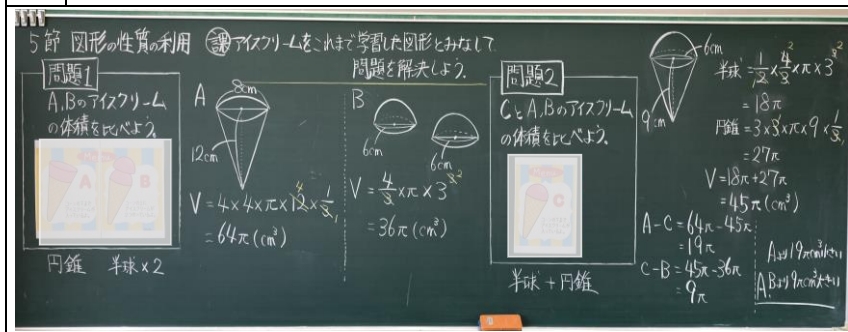 5節 図形の性質の利用 課 アイスクリームをこれまで学習した図形とみなして
問題を解決しよう。
問題1
A,Bのアイスクリーム
の体積を比べよう。
A
B
円錐 半球×2
A
8cm
12cm
V=4×4×π×12×1/3
=64π(cm³)
B
6cm
6cm
V=4/3×π×3³
=36π(cm³)
問題2
CとA,Bのアイスクリーム
の体積を比べよう。
C
半球+円錐
6cm
9cm
半球=1/2×4/3×π×3³
=18π
円錐=3×3×π×9×1/3
=27π
V=18π+27π
=45π(cm³)
A-C=64π-45π
=19π
C-B=45π-36π
=9π
Aより19πcm³小さい
A.Bより9πcm³大きい